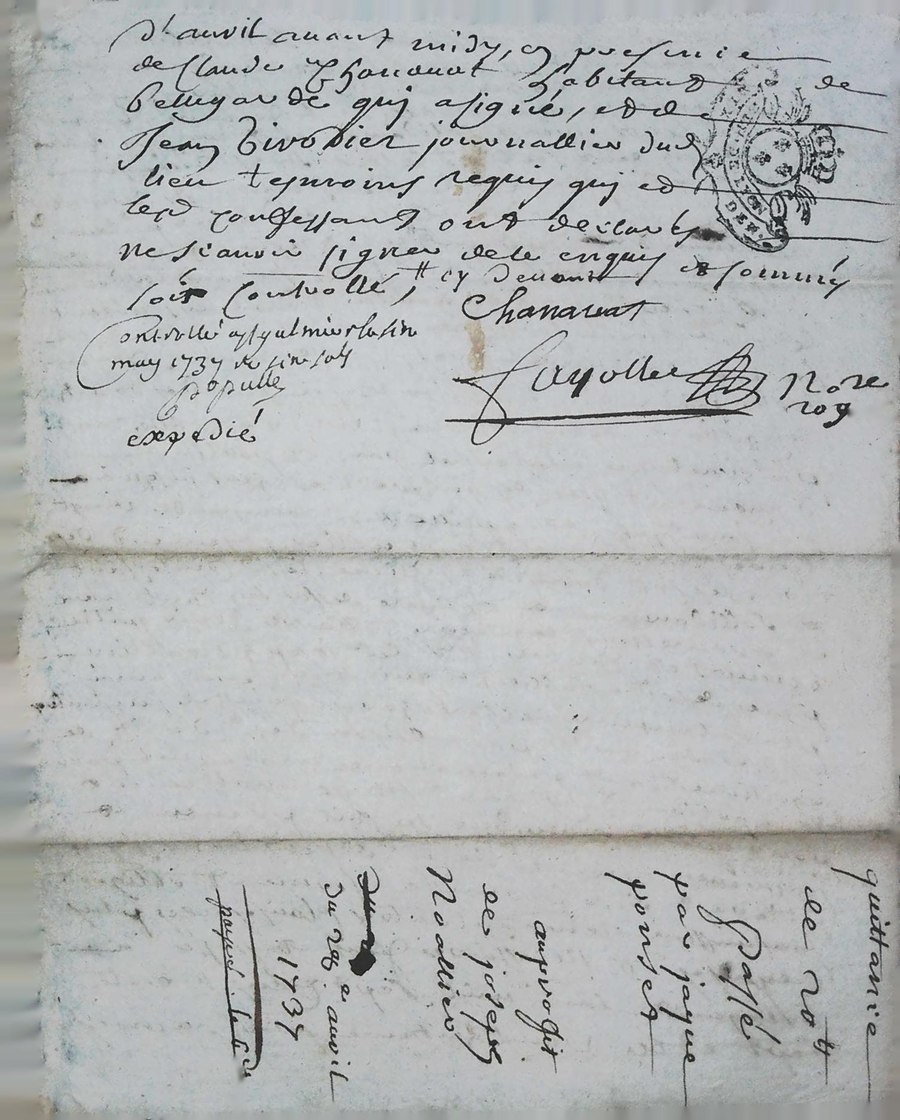 d'avril avant midy, en presence
de Claude Chanavat habitant de
bellegarde qui a signé, et de
Jean journallier dud
lieu tesmoins requis qui et
led confessant ont declaré
ne scavoir signer de ce enquis et sommés
soit controllé, cy devant
Chanavat
Controllé a st galmier le sin
may 1737 R sin sols
expedié
Fayolle Nore
roy
quittance
de 20 tt
Passé
par jaque
ponset
au profit
de joseph
Noallier
du
du 29e avril
1737
payé le